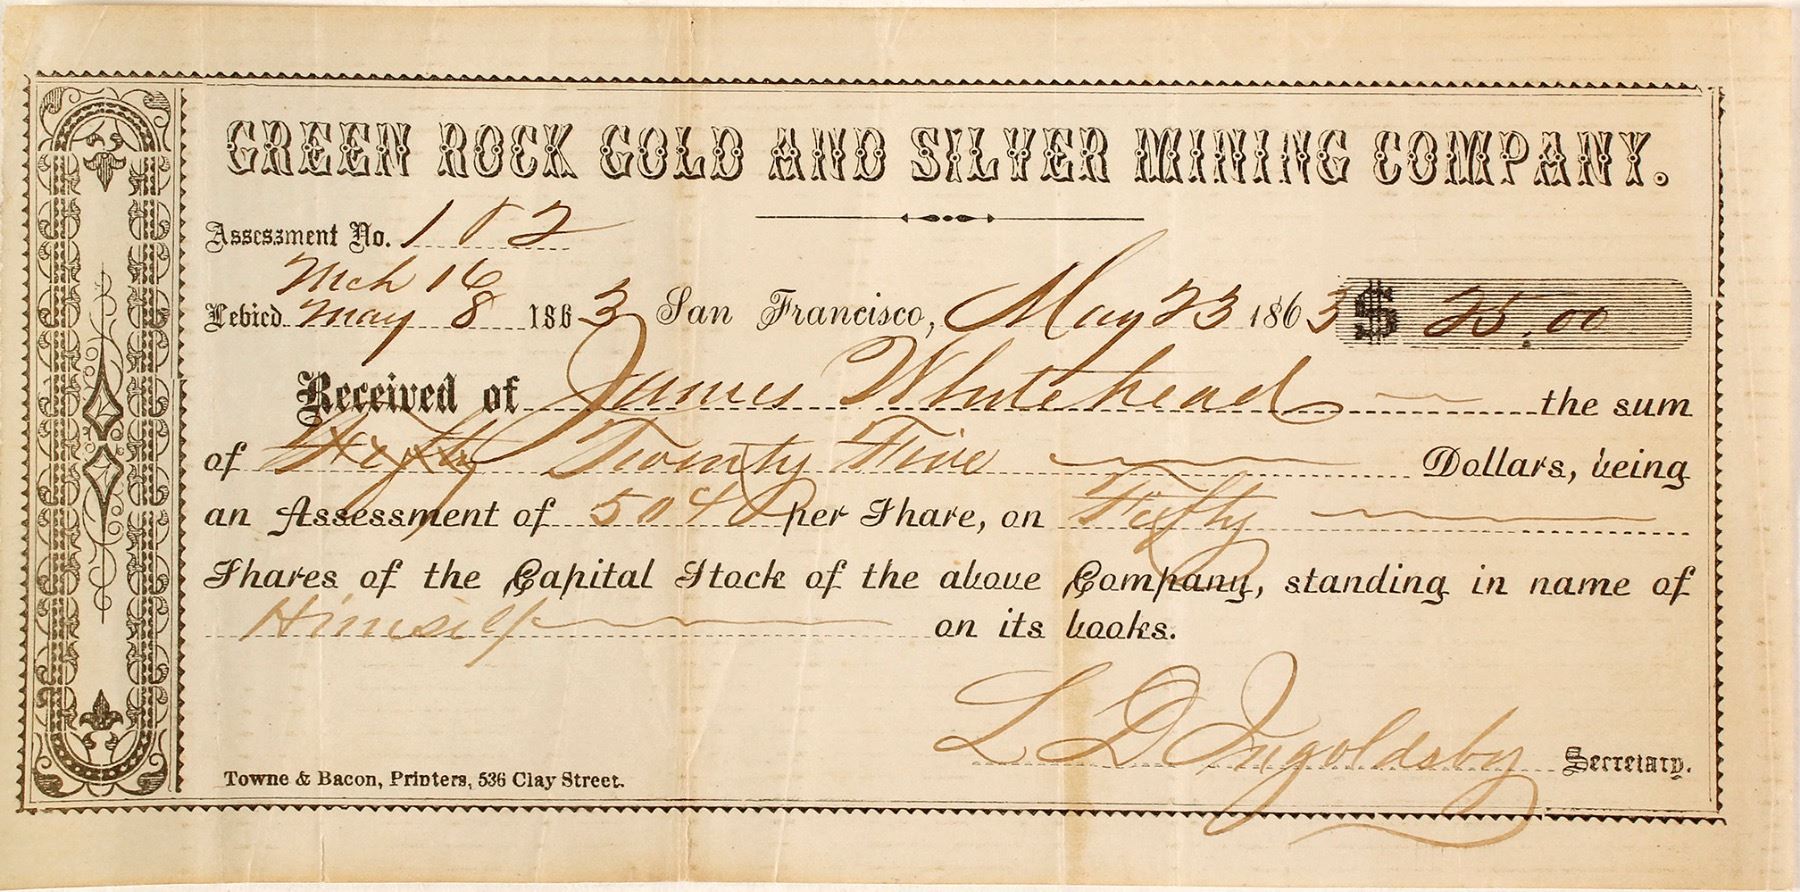 GREEN ROCK GOLD AND SILVER MINING COMPANY.
Assessment No. 1 & 2
Mch 16
Levied May 8 1863 San Francisco, May 23 1863 $ 25.00
Received of James Whitehead the sum
of Fifty Twenty Five Dollars, being
an Assessment of 50¢ per Share, on Fifty
Shares of the Capital Stock of the above Company, standing in name of
Himself on its books.
L D Ingoldsby Secretary.
Towne & Bacon, Printers, 536 Clay Street.